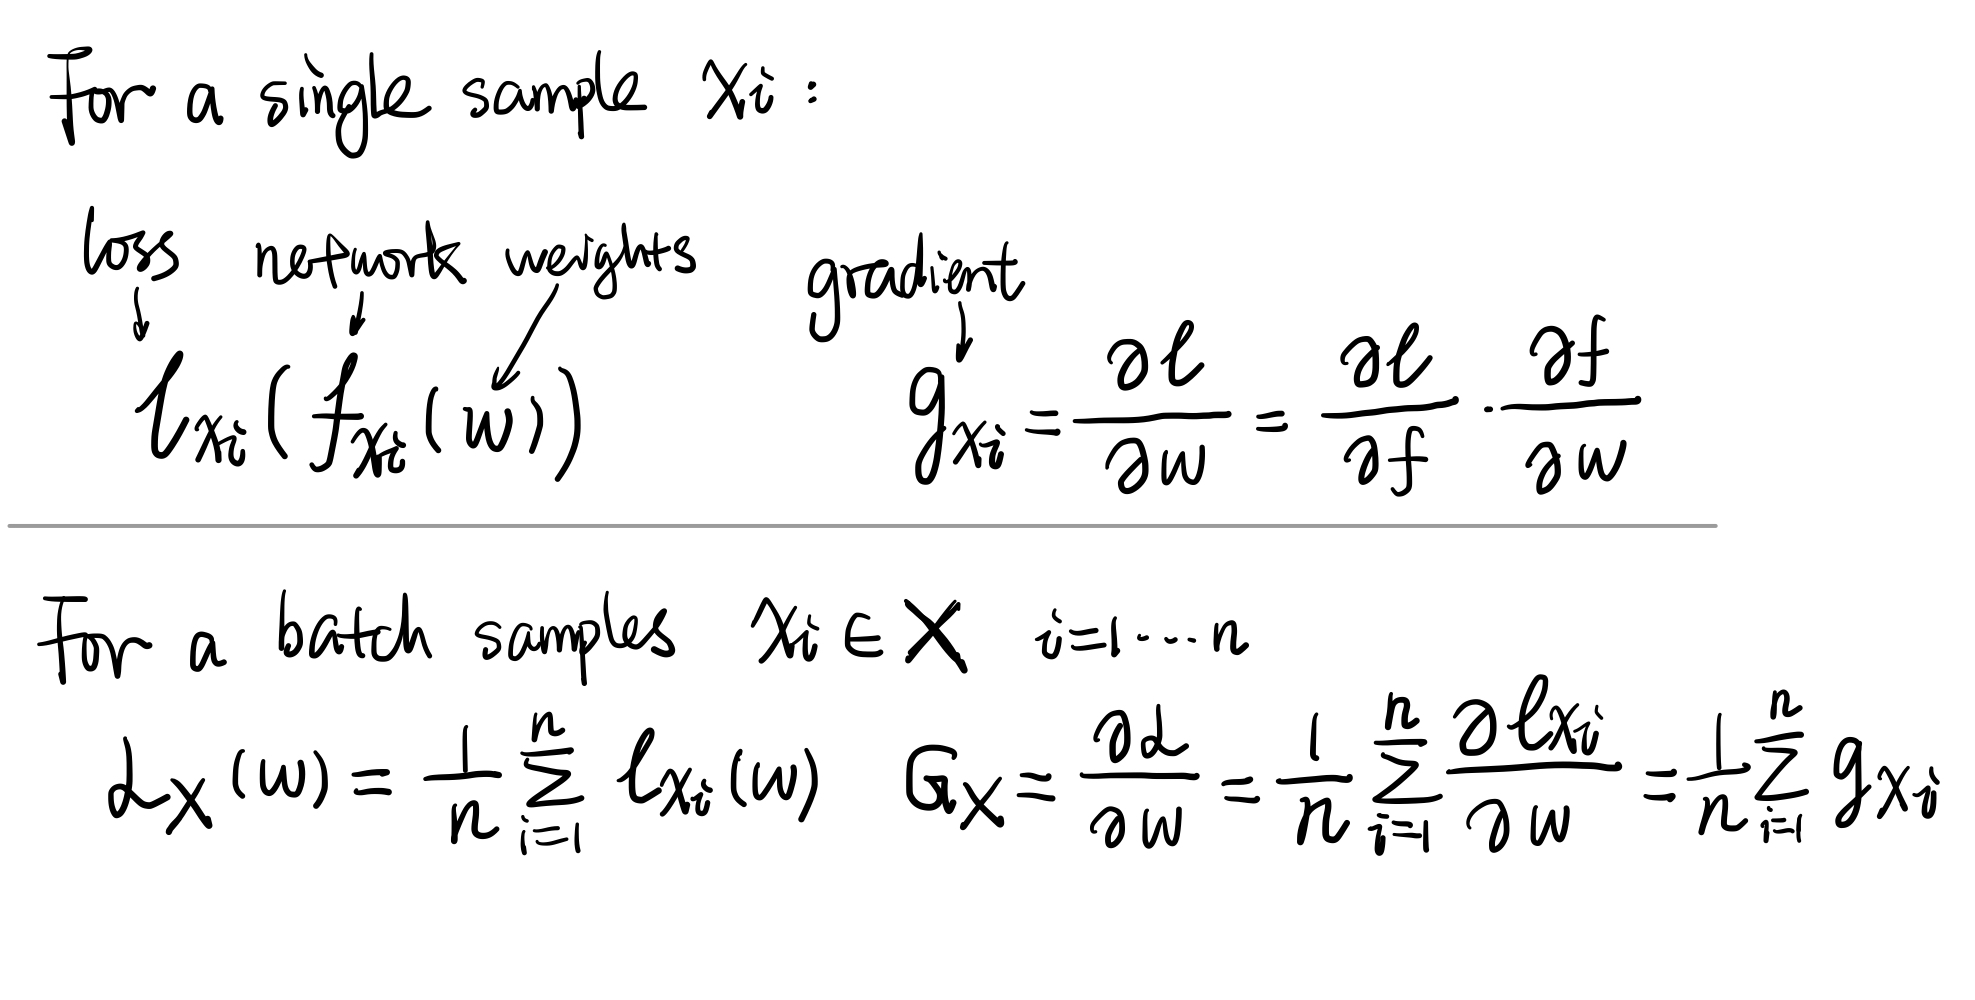 For a single sample xᵢ :
loss network weights gradient
ℓ_{xᵢ}(f_{xᵢ}(w)) g_{xᵢ} = ∂ℓ/∂w = ∂ℓ/∂f · ∂f/∂w
For a batch samples xᵢ ∈ X i=1 ··· n
L_X(w) = 1/n ∑_{i=1}^{n} ℓ_{xᵢ}(w) G_X = ∂L/∂w = 1/n ∑_{i=1}^{n} ∂ℓ_{xᵢ}/∂w = 1/n ∑_{i=1}^{n} g_{xᵢ}